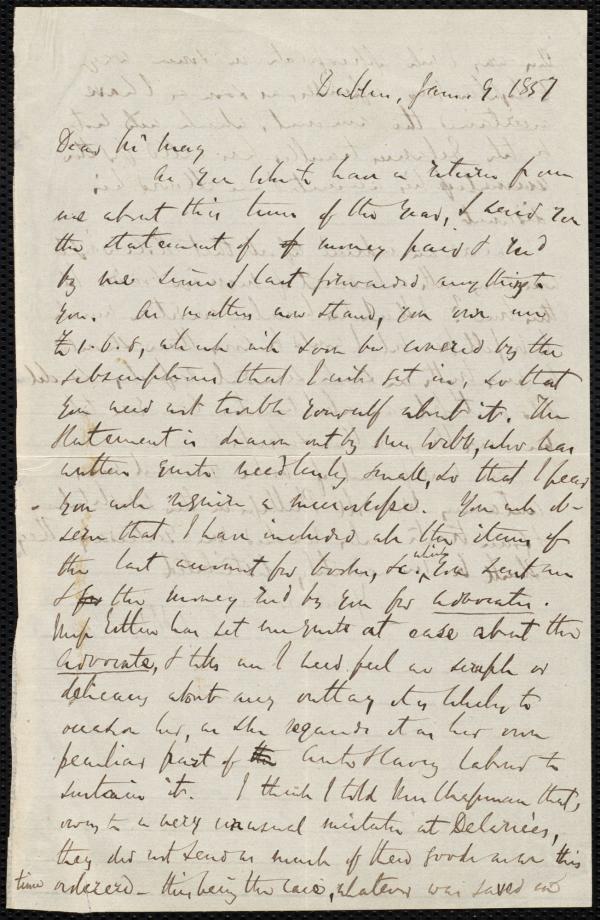 Dublin, Jan. 9. 1857
Dear Mr May
As you like to have a return from
me about this time of the year, I send you
the statement of money paid & rec'd
by me since I last forwarded anything to
you. As matters now stand, you owe me
£1.6.8, which will soon be covered by the
subscriptions that I will get in, so that
you need not trouble yourself about it. The
statement is drawn out by Mrs Webb, who has
written quite needlessly small, so that I fear
you will require a microscope. You will ob-
serve that I have included all the items of
the last account for books, &c. which you sent me
& for the money rec'd by you for Advocates.
Miss Estlin has set me quite at ease about the
Advocate, & tells me I need feel no scruple or
delicacy about any outlay it is likely to
occasion her, as she regards it as her own
peculiar part of the Anti Slavery labour to
sustain it. I think I told Mrs Chapman that,
owing to a very unusual mistake at Delarues,
they did not send as much of their goods as on this
time ordered - this being the case, whatever was saved in